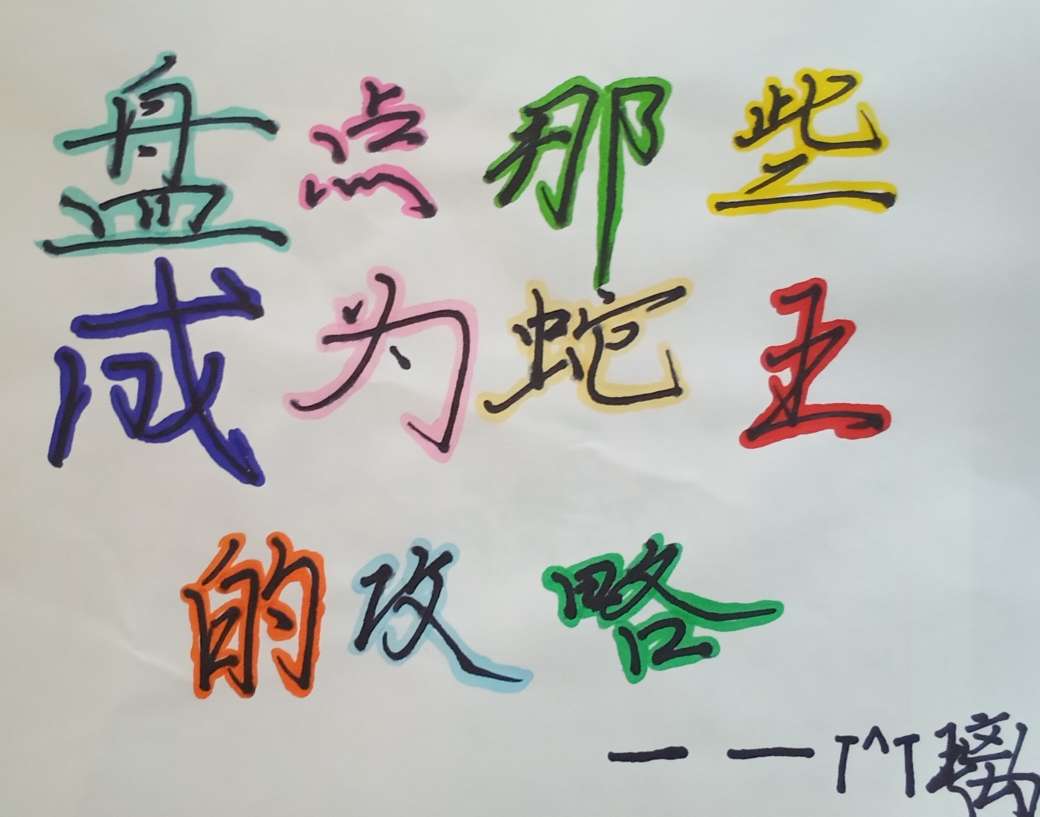 盘点那些
成为蛇王
的攻略
——T^T璃